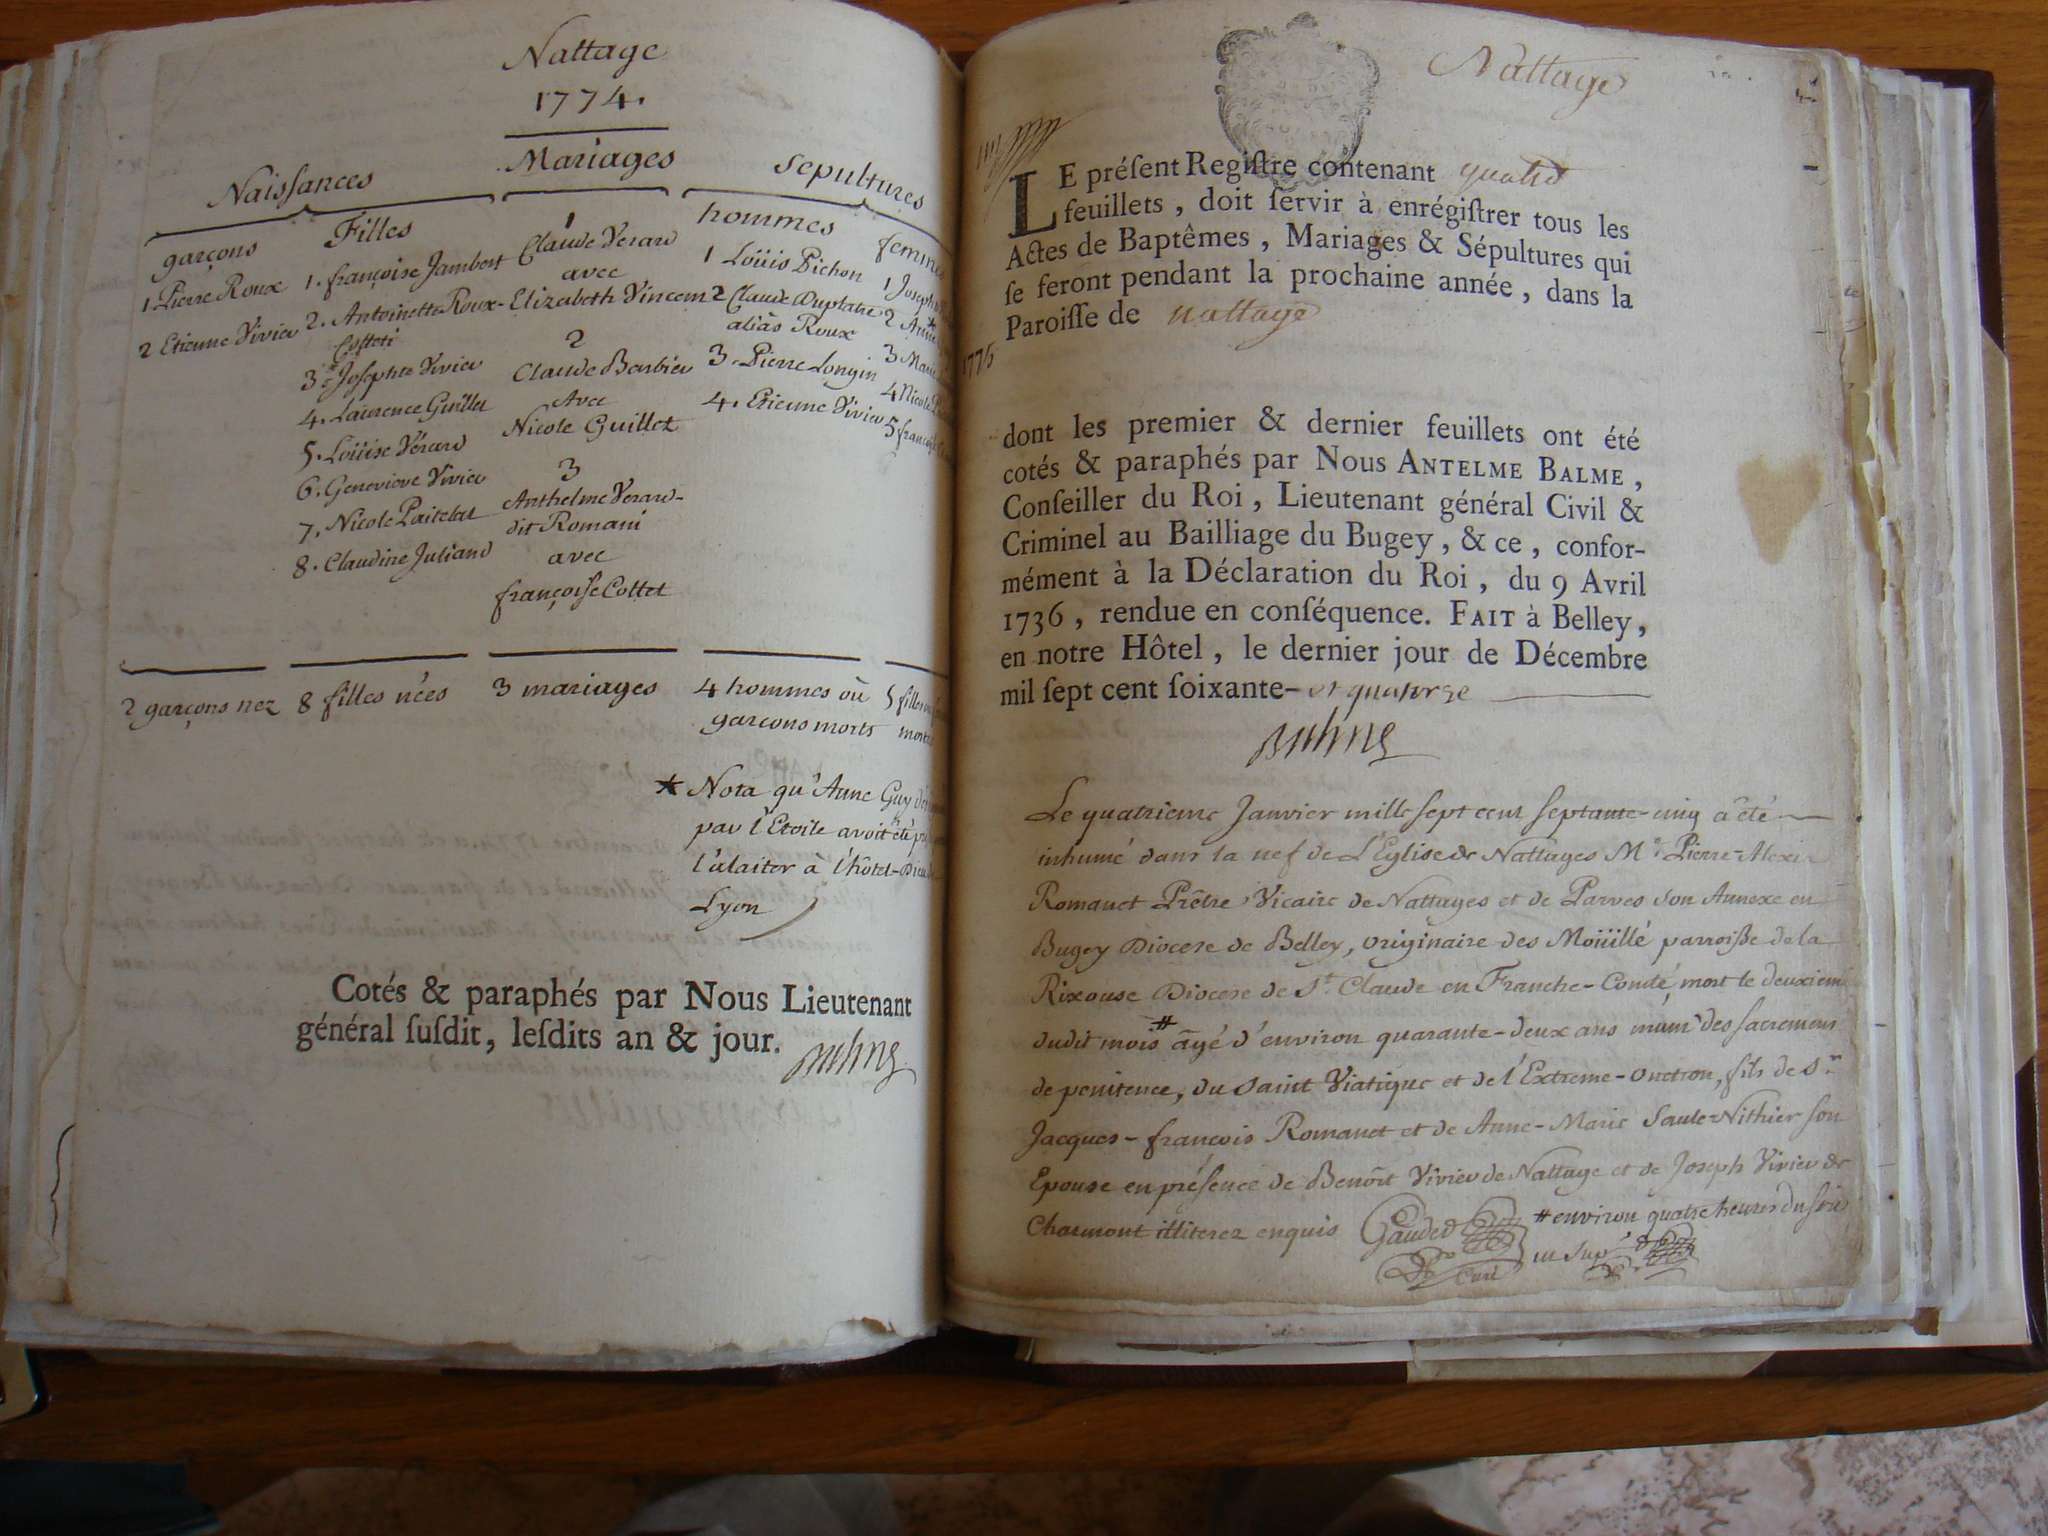 Nattage
1774.
Naissances
Mariages
sepultures
garçons
Filles
hommes
femmes
1. Pierre Roux
2 Etienne Vivier
1. françoise Jambert
2. Antoinette Roux-
Cotteti
3. Josephte Vivier
4. Laurence Guillet
5. Loüise Vérard
6. Genevieve Vivier
7. Nicole
8. Claudine Juliand
1
Claude Verard
avec
Elizabeth Vincent
2
Claude Barbier
Avec
Nicole Guillet
3
Anthelme Verard-
dit Romani
avec
françoise Cottet
1 Loüis Pichon
2 Claude Duplatre
aliàs Roux
3. Pierre Longin
4. Etienne Vivier
1 Joseph
2
3 Marie
4 Nicole
5 françoise
2 garçons nez
8 filles nées
3 mariages
4 hommes où
garçons morts
5 filles
* Nota qu'Anne Guy
par l'Etoile avoit été
l'alaiter à l'hôtel-Dieu
Lyon
Cotés & paraphés par Nous Lieutenant
général ſuſdit, leſdits an & jour.
Balme
Nattage
LE préſent Regiſtre contenant quatre
feuillets, doit ſervir à enrégiſtrer tous les
Actes de Baptêmes, Mariages & Sépultures qui
ſe feront pendant la prochaine année, dans la
Paroiſſe de Nattage
1775
dont les premier & dernier feuillets ont été
cotés & paraphés par Nous ANTELME BALME,
Conſeiller du Roi, Lieutenant général Civil &
Criminel au Bailliage du Bugey, & ce, confor-
mément à la Déclaration du Roi, du 9 Avril
1736, rendue en conſéquence. FAIT à Belley,
en notre Hôtel, le dernier jour de Décembre
mil ſept cent ſoixante- et quatorze
Balme
Le quatrieme Janvier mille sept cent septante-cinq a été
inhumé dans la nef de L'Eglise de Nattages Mr. Pierre-Alexis
Romanet Prêtre Vicaire de Nattages et de Parves son Annexe en
Bugey Diocese de Belley, originaire des Moüillé parroisse de la
Rixouse Diocese de St. Claude en Franche-Comté, mort le deuxieme
dudit mois # âgé d'environ quarante-deux ans muni des sacremens
de penitence, du saint Viatique et de l'Extreme-onction, fils de Sr.
Jacques-françois Romanet et de Anne-Marie Saule-Nithier son
Epouse en présence de Benoit Vivier de Nattage et de Joseph Vivier de
Charmont illiterez enquis
# environ quatre heures du soir
Curé